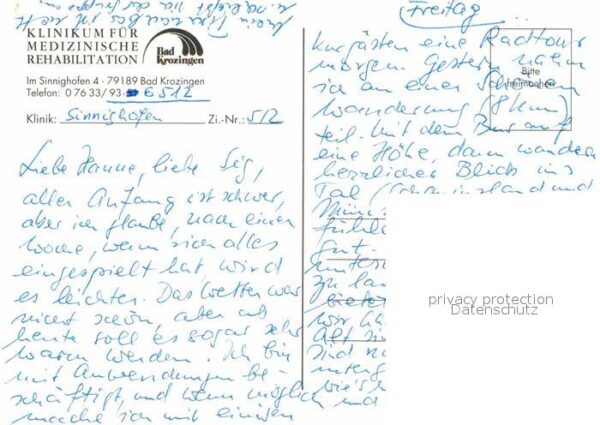 KLINIKUM FÜR
MEDIZINISCHE
REHABILITATION
Bad
Krozingen
Im Sinnighofen 4 · 79189 Bad Krozingen
Telefon: 0 76 33/93- 6512
Klinik: Sinnighofen Zi.-Nr.: 512
Liebe Hanne, liebe Sig,
aller Anfang ist schwer,
aber ich glaube, nach einer
Woche, wenn sich alles
eingespielt hat wird
es leichter. Das Wetter war
nicht schön, aber ab
heute soll es sogar sehr
warm werden. Ich bin
mit Anwendungen be-
schäftigt, und wenn möglich
mache ich mit einigen
Freitag...
Kurgästen eine Radtour
morgen. Gestern nahm
ich an einer schönen
Wanderung (8 km)
teil. Mit dem Bus auf
eine Höhe, dann wandern
herrlicher Blick ins
Tal (Schauinsland und
Müns
fühl
gut.
unters
zu lan
bieten
wir
Alt
sind
unterg
wie's
und
Bitte
freimachen
privacy protection
Datenschutz